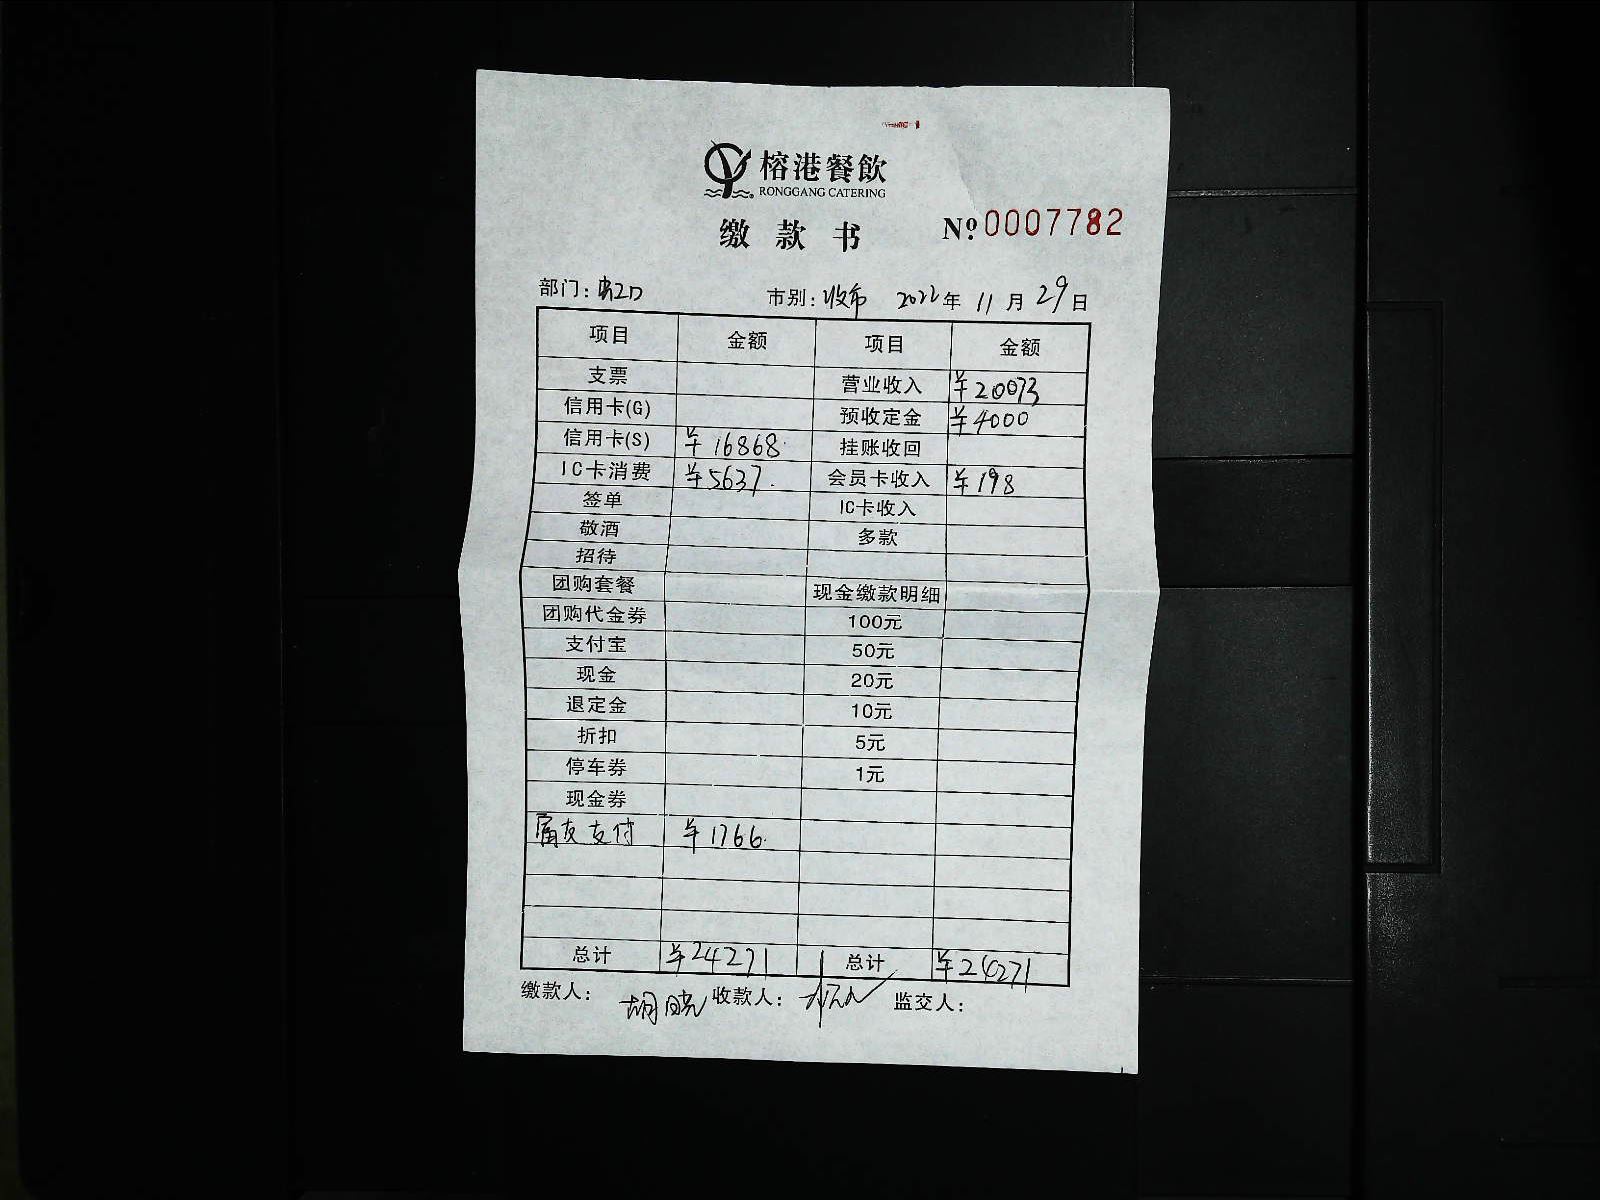 榕港餐飲
RONGGANG CATERING
缴款书 №0007782
部门: 市别:收市 2022年11月29日
项目 金额 项目 金额
支票 营业收入 ¥20073
信用卡(G) 预收定金 ¥4000
信用卡(S) ¥16868 挂账收回
IC卡消费 ¥5637. 会员卡收入 ¥198
签单 IC卡收入
敬酒 多款
招待
团购套餐 现金缴款明细
团购代金券 100元
支付宝 50元
现金 20元
退定金 10元
折扣 5元
停车券 1元
现金券
富友支付 ¥1766.
总计 ¥24271 总计 ¥24271
缴款人: 胡晓 收款人: 监交人: